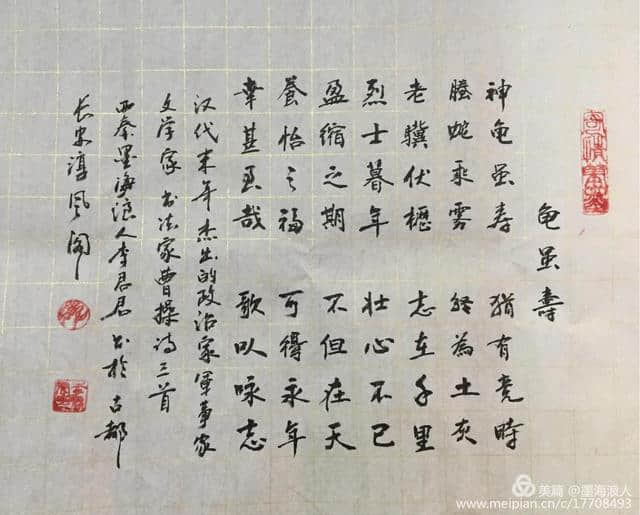 龟虽寿
神龟虽寿 猶有竟時
騰蛇乘雾 终為土灰
老驥伏櫪 志在千里
烈士暮年 壮心不已
盈缩之期 不但在天
養怡之福 可得永年
幸甚至哉 歌以咏志
汉代末年杰出的政治家軍事家
文学家书法家曹操诗三首
西秦墨海浪人李君君书於古都
长安淳风阁
美篇 @墨海浪人
www.meipian.cn/c/17708493